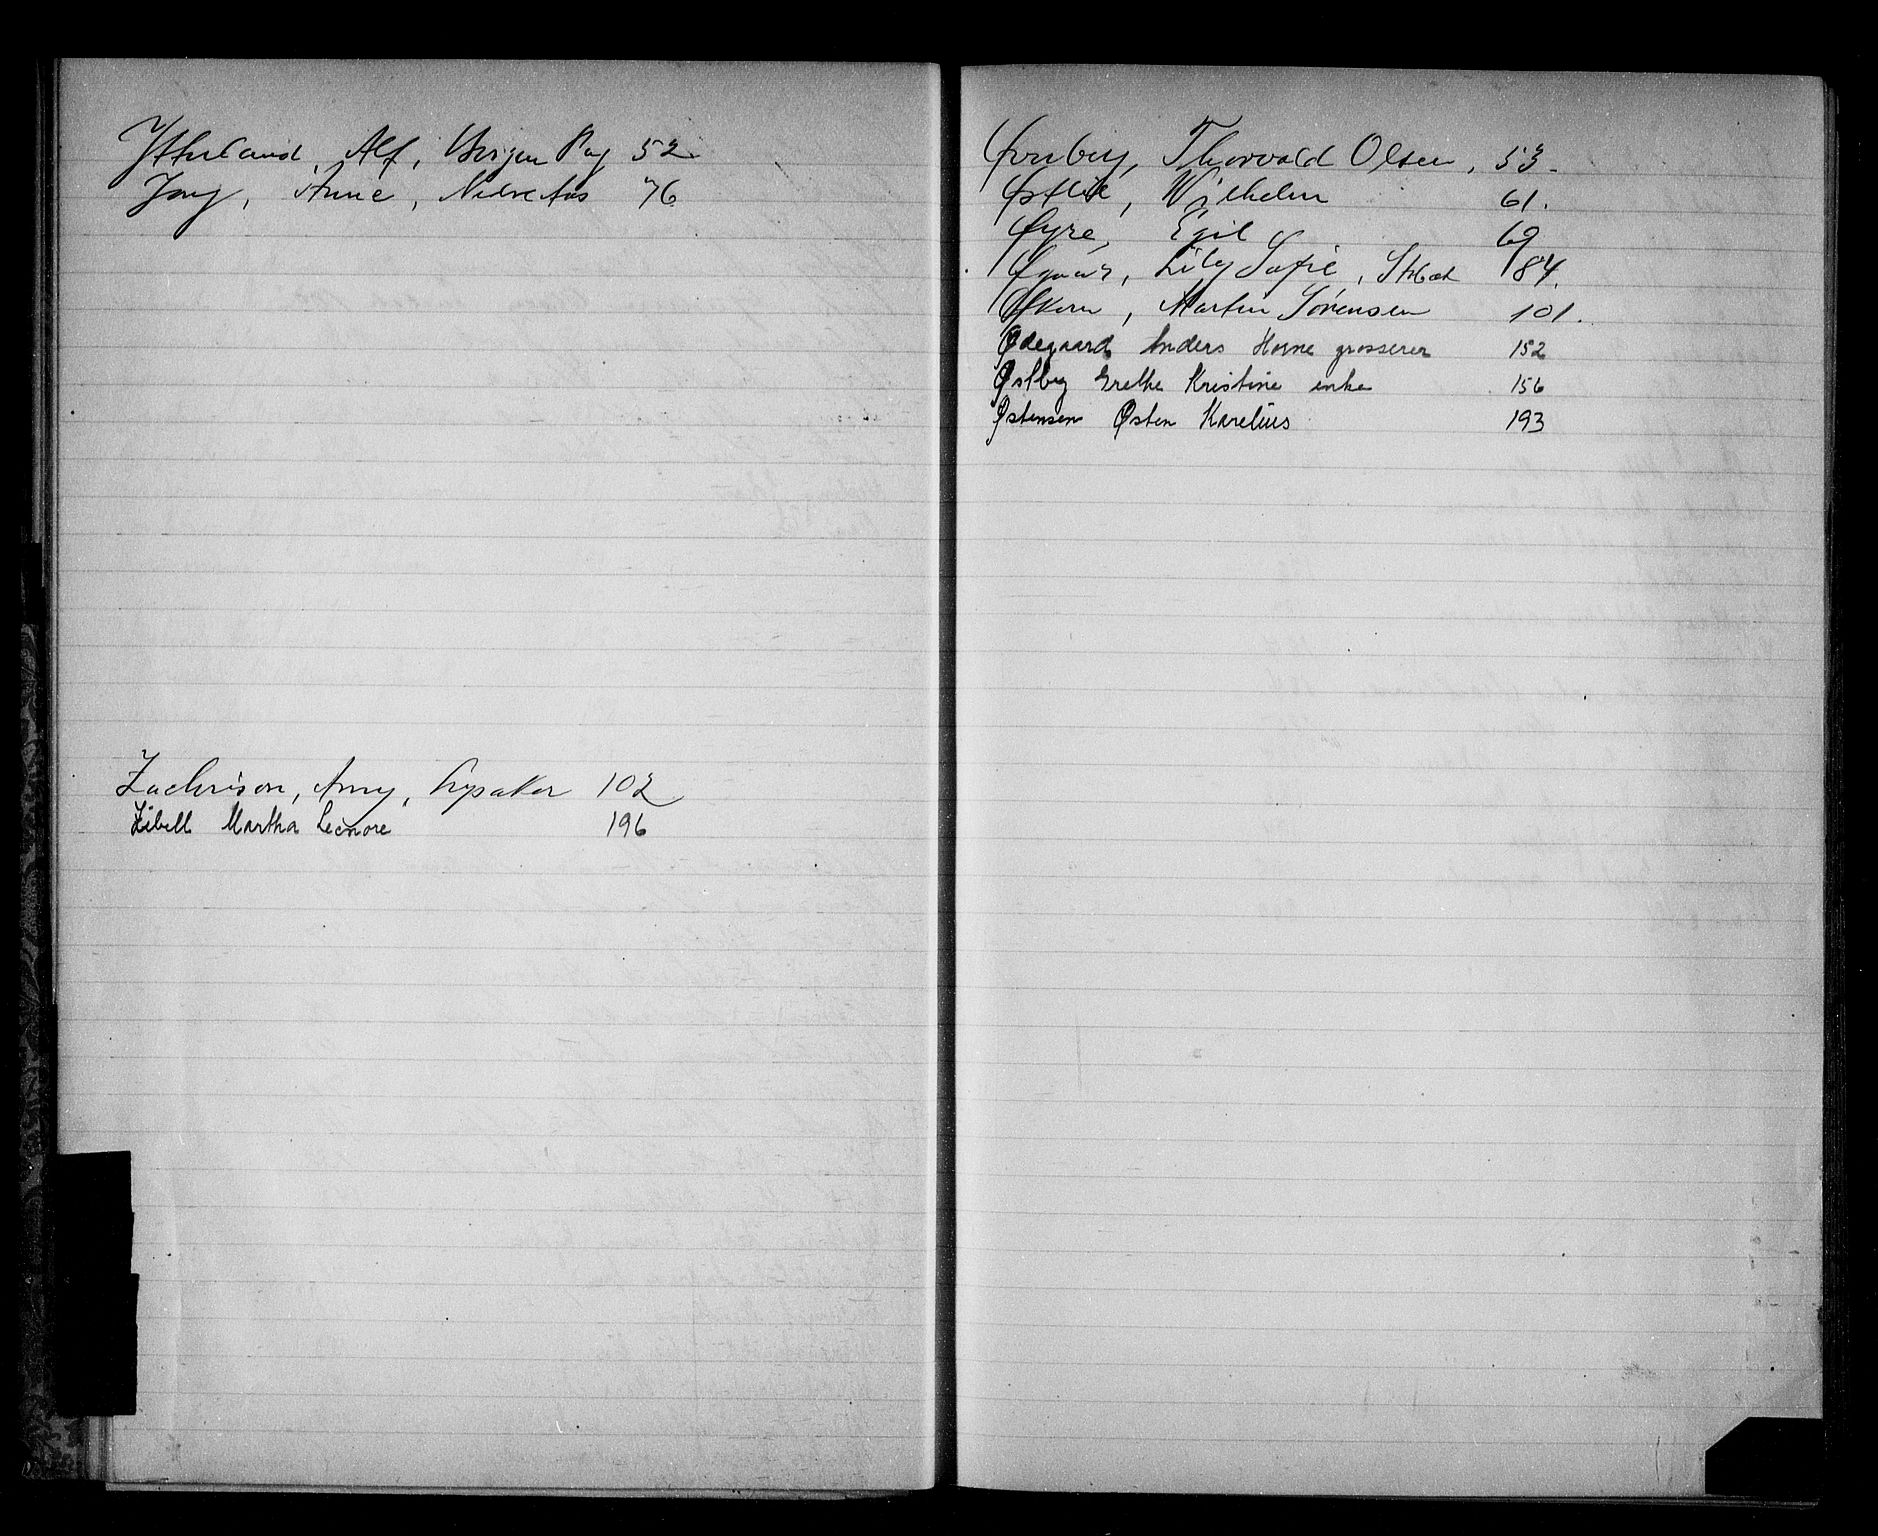 Ytterland, Alf, Pag 52
Anne, 76
Zachrison, Amy, 102
Zibell Martha Leonore 196
Thorvald Olsen, 53.
Wilhelm 61.
Øyre, Egil 69
Lily Sofie, 84.
Økern, Martin Sørensen 101.
Ødegaard Anders Horne grosserer 152
Østby Grethe Kristine enke 156
Østensen Østen Karelius 193